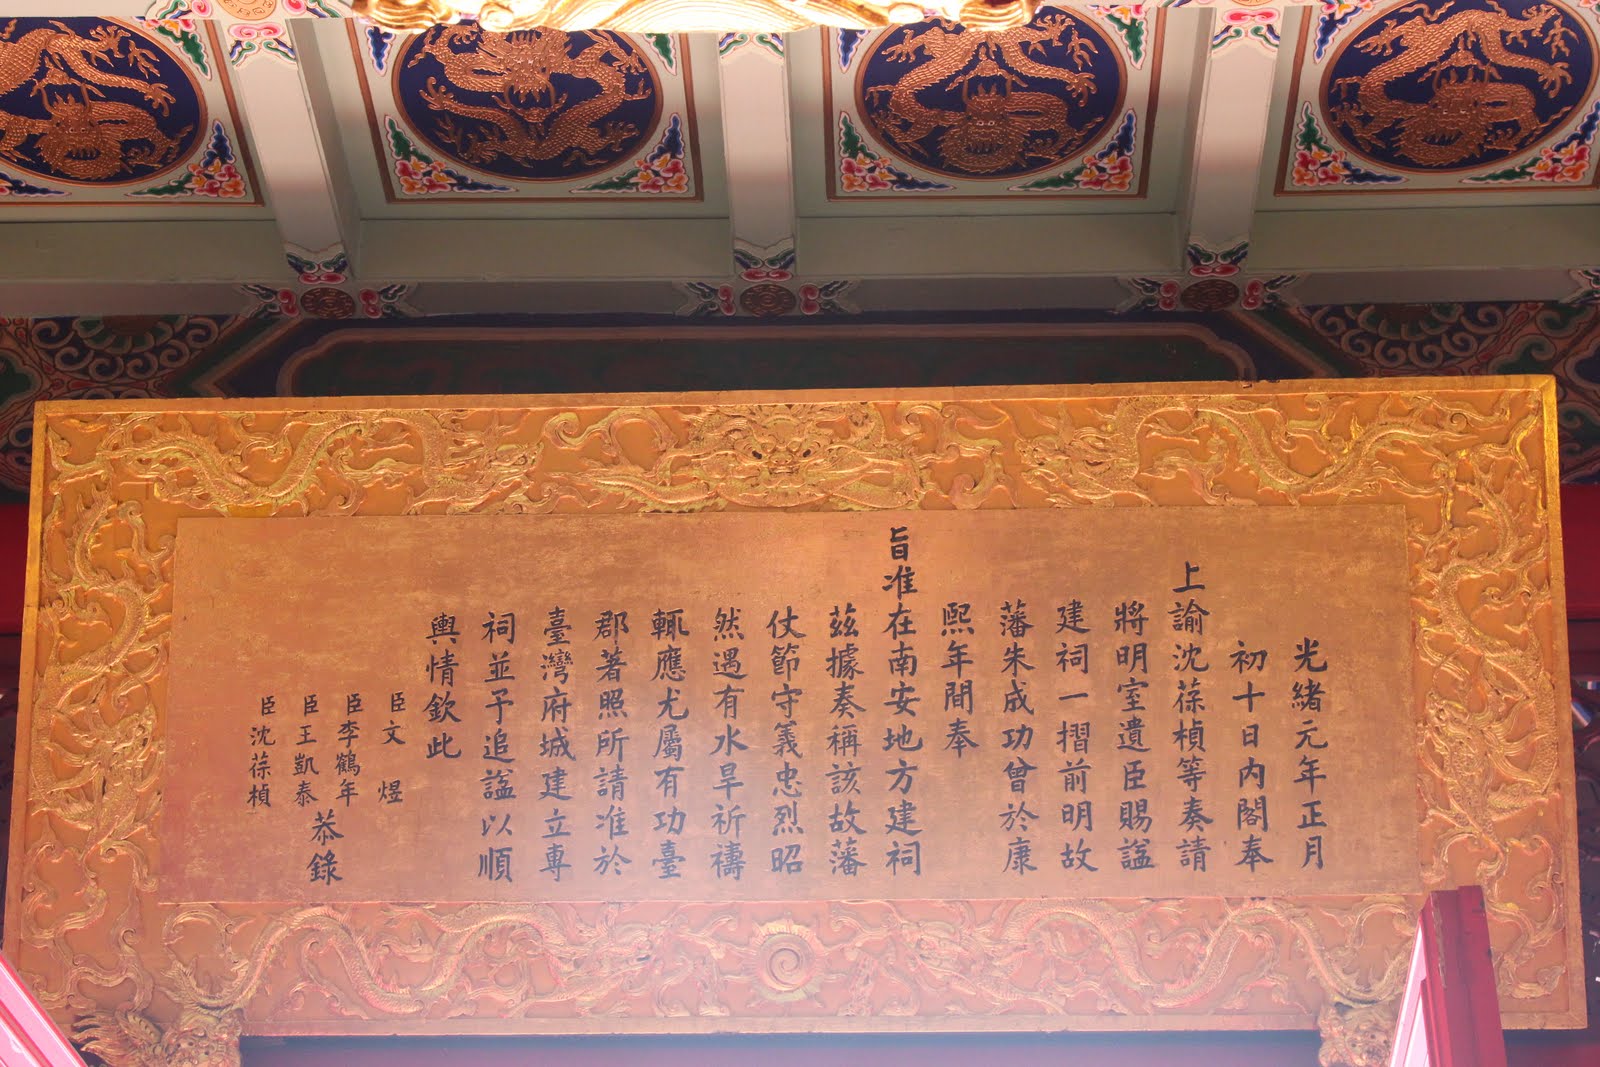 光緒元年正月
初十日內閣奉
上諭沈葆楨等奏請
將明室遺臣賜諡
建祠一摺前明故
藩朱成功曾於康
熙年間奉
旨准在南安地方建祠
茲據奏稱該故藩
仗節守義忠烈昭
然遇有水旱祈禱
輒應尤屬有功臺
郡著照所請准於
臺灣府城建立專
祠並予追諡以順
輿情欽此
臣文煜
臣李鶴年
臣王凱泰
臣沈葆楨
恭錄